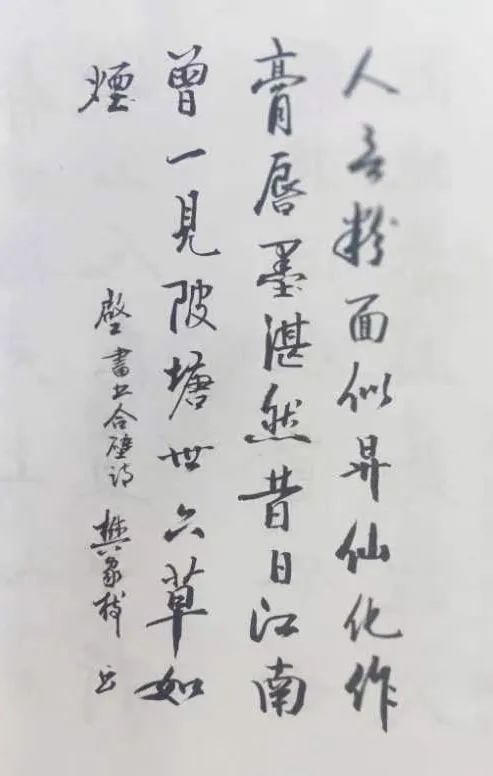 人言粉面似昇仙化作
膏唇墨湛然昔日江南
曾一見陂塘卅六草如
煙
書合璧诗 樊家 书